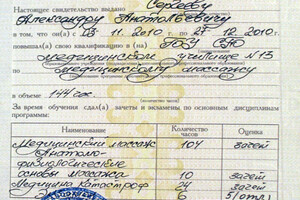 Настоящее свидетельство выдано Сергееву
Александру Анатольевичу
в том, что он(а) с 03 11 2010 г. по 27 12 2010 г.
повышал(а) свою квалификацию в (на) ГОУ СПО
Медицинском училище №13
по медицинскому массажу
в объеме 144 час.
За время обучения сдал(а) зачеты и экзамены по основным дисциплинам
программы:
Наименование Количество часов Оценка
Медицинский массаж 104 зачет
Анатомо-
физиологические
основы массажа 10 зачет
Медицина катастроф 24 зачет
6 5 (отл)